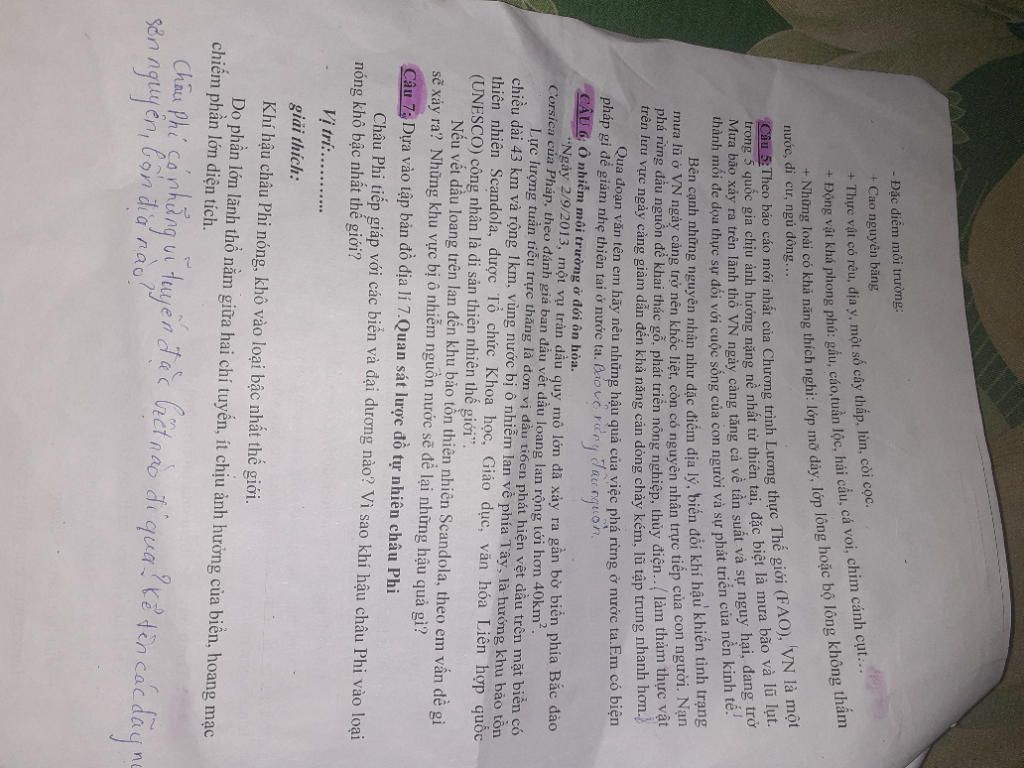 - Đặc điểm môi trường:
+ Cao nguyên băng
+ Thực vật có rêu, địa y, một số cây thấp, lùn, còi cọc.
+ Động vật khá phong phú: gấu, cáo, tuần lộc, hải cẩu, cá voi, chim cánh cụt…
+ Những loài có khả năng thích nghi: lớp mỡ dày, lớp lông hoặc bộ lông không thấm
nước, di cư, ngủ đông…
Câu 5: Theo báo cáo mới nhất của Chương trình Lương thực Thế giới (FAO), VN là một
trong 5 quốc gia chịu ảnh hưởng nặng nề nhất từ thiên tai, đặc biệt là mưa bão và lũ lụt.
Mưa bão xảy ra trên lãnh thổ VN ngày càng tăng cả về tần suất và sự nguy hại, đang trở
thành mối đe dọa thực sự đối với cuộc sống của con người và sự phát triển của nền kinh tế.
Bên cạnh những nguyên nhân như đặc điểm địa lý, biến đổi khí hậu khiến tình trạng
mưa lũ ở VN ngày càng trở nên khốc liệt, còn có nguyên nhân trực tiếp của con người. Nạn
phá rừng đầu nguồn để khai thác gỗ, phát triển nông nghiệp, thủy điện…( làm thảm thực vật
trên lưu vực ngày càng giảm dần đến khả năng cản dòng chảy kém, lũ tập trung nhanh hơn.)
Qua đoạn văn lên em hãy nêu những hậu quả của việc phá rừng ở nước ta.Em có biện
pháp gì để giảm nhẹ thiên tai ở nước ta. Bảo vệ rừng đầu nguồn.
CÂU 6. Ô nhiễm môi trường ở đới ôn hòa.
"Ngày 2/9/2013, một vụ tràn dầu quy mô lớn đã xảy ra gần bờ biển phía Bắc đảo
Corsica của Pháp, theo đánh giá ban đầu vết dầu loang lan rộng tới hơn 40km².
Lực lượng tuần tiễu trực thăng là đơn vị đầu tiên phát hiện vết dầu trên mặt biển có
chiều dài 43 km và rộng 1km, vùng nước bị ô nhiễm lan về phía Tây, là hướng khu bảo tồn
thiên nhiên Scandola, được Tổ chức Khoa học, Giáo dục, văn hóa Liên hợp quốc
(UNESCO) công nhân là di sản thiên nhiên thế giới".
Nếu vết dầu loang trên lan đến khu bảo tồn thiên nhiên Scandola, theo em vấn đề gì
sẽ xảy ra? Những khu vực bị ô nhiễm nguồn nước sẽ để lại những hậu quả gì?
Câu 7: Dựa vào tập bản đồ địa lí 7.Quan sát lược đồ tự nhiên châu Phi
Châu Phi tiếp giáp với các biển và đại dương nào? Vì sao khí hậu châu Phi vào loại
nóng khô bậc nhất thế giới?
Vị trí:…………
giải thích:
Khí hậu châu Phi nóng, khô vào loại bậc nhất thế giới.
Do phần lớn lãnh thổ nằm giữa hai chí tuyến, ít chịu ảnh hưởng của biển, hoang mạc
chiếm phần lớn diện tích.
Châu Phi có những vĩ tuyến đặc biệt nào đi qua? Kể tên các dãy n
sơn nguyên, bồn địa nào?